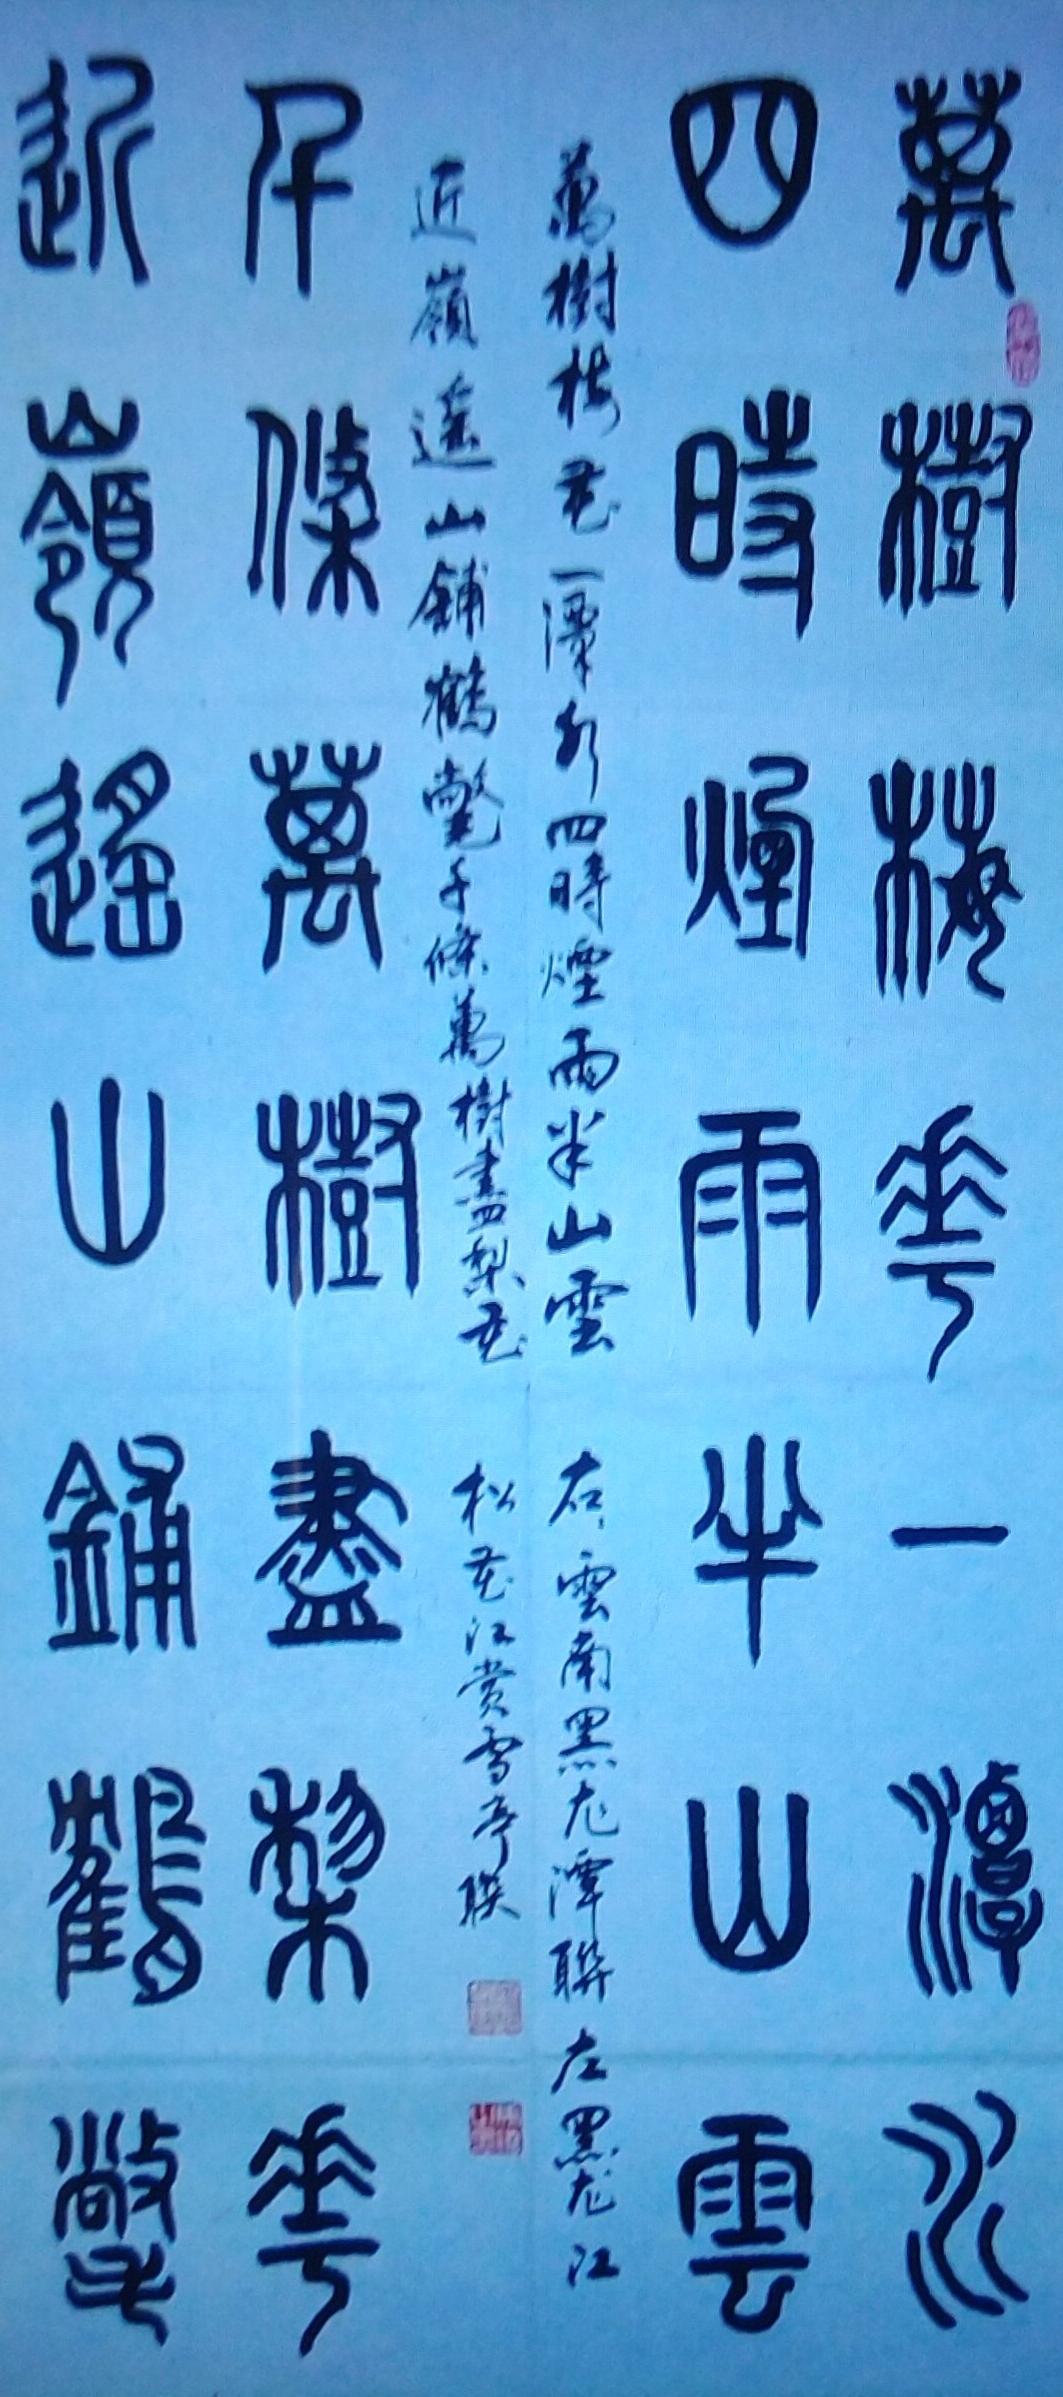 萬樹梅花一潭水
四時煙雨半山雲
萬樹梅花一潭水四時煙雨半山雲 右雲南黑龙潭聯 左黑龙江
近嶺遥山鋪鶴氅千條萬樹盡梨花 松花江赏雪亭联
千條萬樹盡梨花
近嶺遙山鋪鶴氅